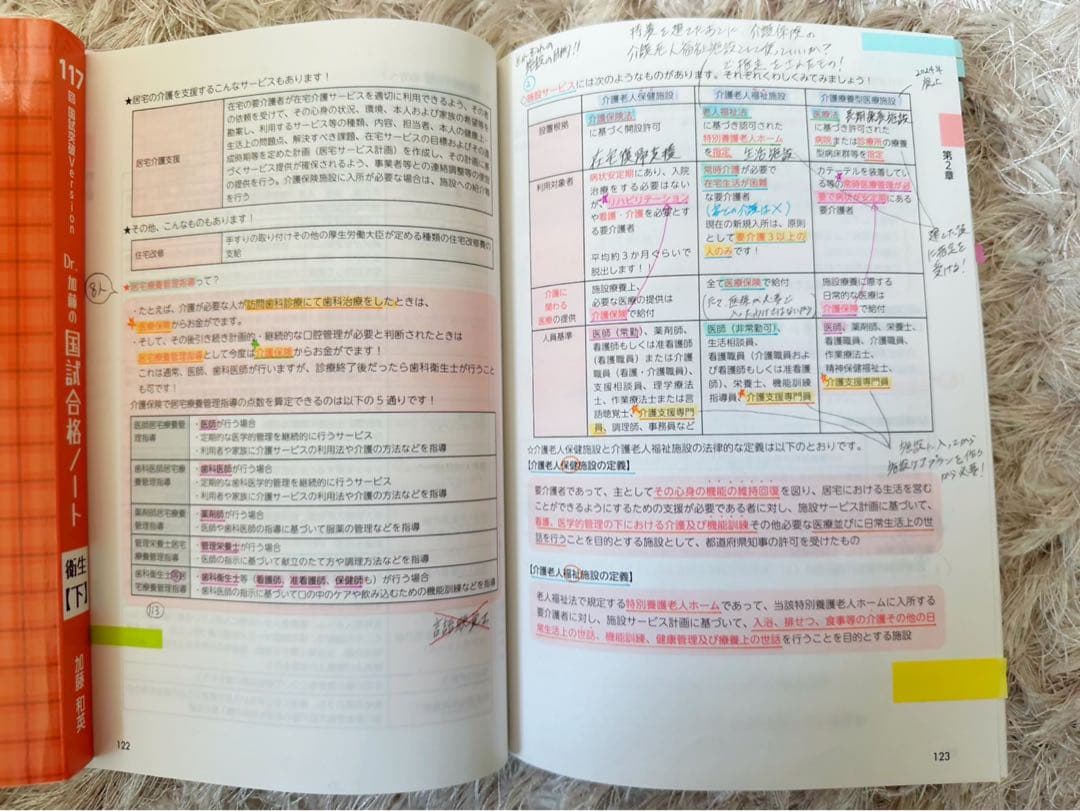 117
回 国試突破Version
Dr. 加藤の
国試合格ノート
衛生
【下】
加藤 和英
★居宅の介護を支援するこんなサービスもあります!
居宅介護支援
在宅の要介護者が在宅介護サービスを適切に利用できるよう、その者
の依頼を受けて、その心身の状況、環境、本人および家族の希望等を
勘案し、利用するサービス等の種類、内容、担当者、本人の健康上・
生活上の問題点、解決すべき課題、在宅サービスの目標およびその達
成時期等を定めた計画(居宅サービス計画)を作成し、その計画に基
づくサービス提供が確保されるよう、事業者等との連絡調整等の便宜
の提供を行う。介護保険施設に入所が必要な場合は、施設への紹介等
を行う
★その他、こんなものもあります!
住宅改修
手すりの取り付けその他の厚生労働大臣が定める種類の住宅改修費の
支給
★居宅療養管理指導って?
・たとえば、介護が必要な人が訪問歯科診療にて歯科治療をしたときは、
医療保険からお金がでます。
・そして、その後引き続き計画的・継続的な口腔管理が必要と判断されたときは
居宅療養管理指導として今度は介護保険からお金がでます!
これは通常、医師、歯科医師が行いますが、診療終了後だったら歯科衛生士が行うこと
も可です!
介護保険で居宅療養管理指導の点数を算定できるのは以下の5通りです!
医師居宅療養管理
指導
・医師が行う場合
・定期的な医学的管理を継続的に行うサービス
・利用者や家族に介護サービスの利用法や介護の方法などを指導
歯科医師居宅療
養管理指導
・歯科医師が行う場合
・定期的な歯科医学的管理を継続的に行うサービス
・利用者や家族に介護サービスの利用法や介護の方法などを指導
薬剤師居宅療養
管理指導
・薬剤師が行う場合
・医師や歯科医師の指示に基づいて服薬の管理などを指導
管理栄養士居宅
療養管理指導
・管理栄養士が行う場合
・医師の指示に基づいて献立のたて方や調理方法などを指導
歯科衛生士等居
宅療養管理指導
・歯科衛生士等(看護師、准看護師、保健師も)が行う場合
・歯科医師の指示に基づいて口の中のケアや飲み込むための機能訓練などを指導
113
言語聴覚士
122
特養を建てたあとに、介護保険の
介護老人福祉施設として使っていいか?
と指定をされたもの!
◇施設サービスには次のようなものがあります。それぞれくわしくみてみましょう!
2024年
廃止
介護老人保健施設
介護老人福祉施設
介護療養型医療施設
設置根拠
介護保険法
に基づく開設許可
在宅復帰支援
老人福祉法
に基づき認可された
特別養護老人ホーム
を指定 生活施設
医療法 長期療養施設
病院または診療所の療養
型病床群等を指定
利用対象者
病状安定期にあり、入院
治療をする必要はない
が、リハビリテーション
や看護・介護を必要とす
る要介護者
平均約3か月ぐらいで
脱出します!
常時介護が必要で
在宅生活が困難
な要介護者
現在の新規入所は、原則
として要介護3以上の
人のみです!
カテーテルを装着してい
る等の常時医療管理が必
要で病状が安定期にある
要介護者
建てた後
に指定を
受ける!
介護に
関わる
医療の提供
施設療養上、
必要な医療の提供は
介護保険で給付
全て医療保険で給付
施設療養に際する
日常的な医療は
介護保険で給付
人員基準
医師(常勤)、薬剤師、
看護師もしくは准看護師
(看護職員)または介護
職員(看護・介護職員)、
支援相談員、理学療法
士、作業療法士または言
語聴覚士、介護支援専門
員、調理師、事務員など
医師(非常勤可)、
生活相談員、
看護職員(介護職員およ
び看護師もしくは准看護
師)、栄養士、機能訓練
指導員、介護支援専門員
医師、薬剤師、栄養士、
看護職員、介護職員、
作業療法士、
精神保健福祉士、
介護支援専門員
施設に入ってから
施設ケアプランを作る
から必要!
☆介護老人保健施設と介護老人福祉施設の法律的な定義は以下のとおりです。
【介護老人保健施設の定義】
要介護者であって、主としてその心身の機能の維持回復を図り、居宅における生活を営む
ことができるようにするための支援が必要である者に対し、施設サービス計画に基づいて、
看護、医学的管理の下における介護及び機能訓練その他必要な医療並びに日常生活上の世
話を行うことを目的とする施設として、都道府県知事の許可を受けたもの
【介護老人福祉施設の定義】
老人福祉法で規定する特別養護老人ホームであって、当該特別養護老人ホームに入所する
要介護者に対し、施設サービス計画に基づいて、入浴、排せつ、食事等の介護その他の日
常生活上の世話、機能訓練、健康管理及び療養上の世話を行うことを目的とする施設
第2章
123